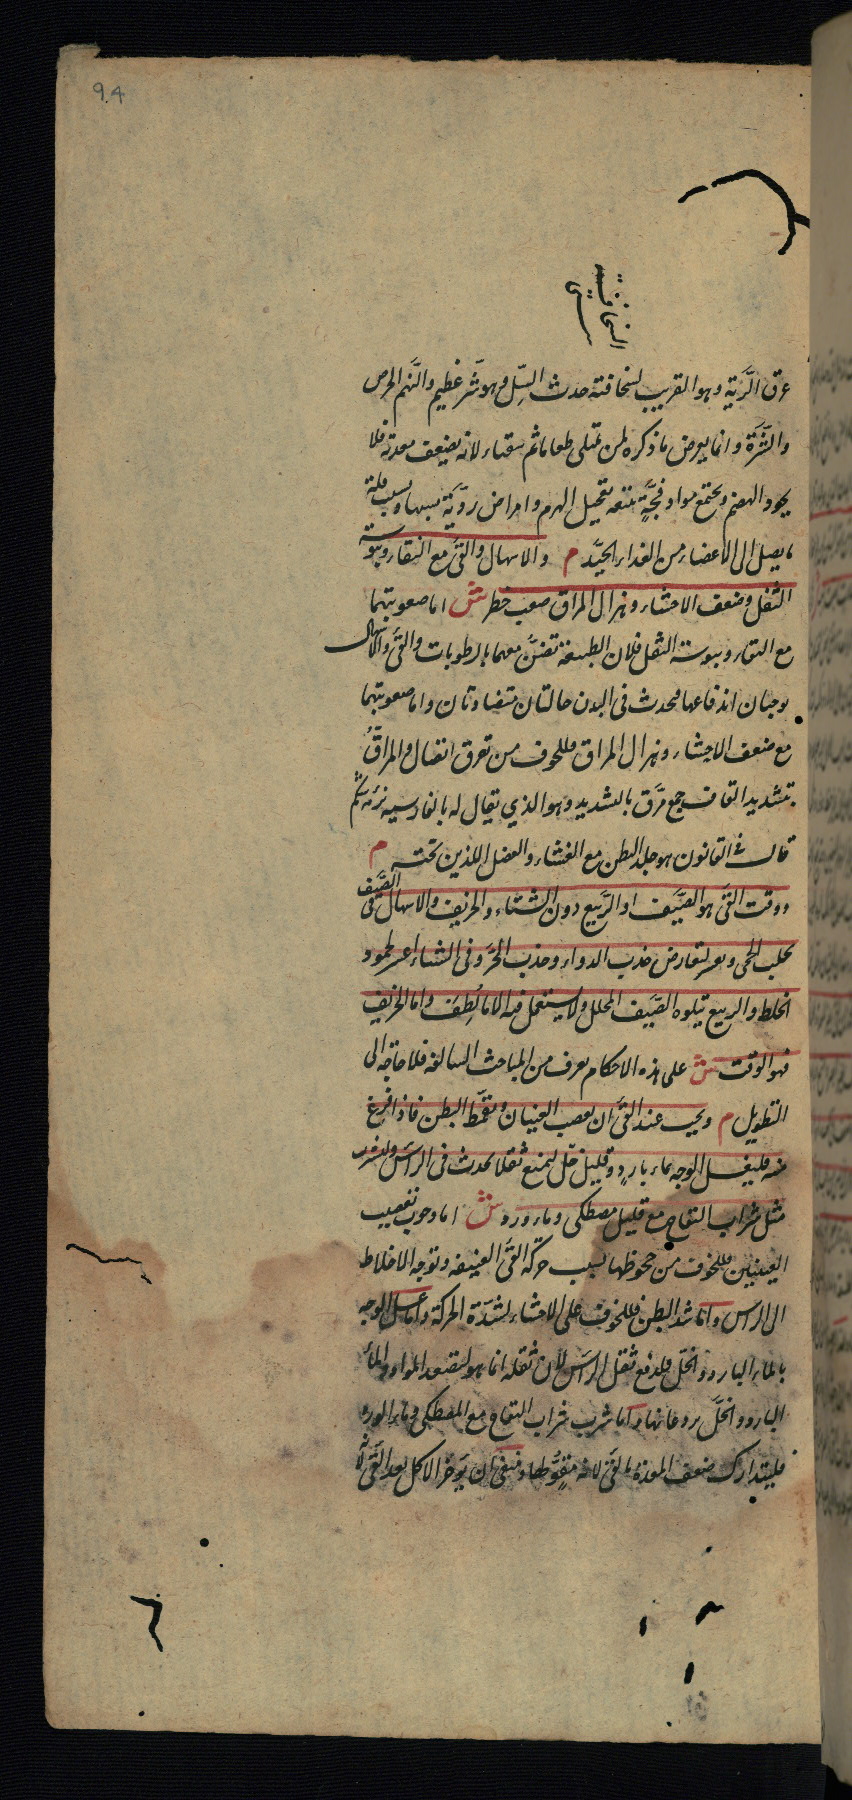 94
النحافة
عرق الرّية وهو القريب لنحافته حدث السِل وهو شر عظيم والنَّهم الحرص
والشَّرَة وانما يعرض ما ذكره لمن تملى طعاما ثم يتقياء لانه يضعف معدته فلا
يجود الهضم ويجتمع مواد فجَّة تعجيل الهرم وامراض رديَّة بسببها وبسبب قلة
ما يصل الى الاعضاء من الغداء الجيَّد م والاسهال والقئ مع النقاء ويبوسة
الثفل وضعف الاحشاء وهزال المراق صعب خطر ش اما صعوبتهما
مع النقاء ويبوسة الثفل فلان الطبيعة تضنّ معهما بالرطوبات والقئ والاسهال
يوجبان اندفاعها فيحدث فى البدن حالتان متضادتان واما صعوبتهما
مع ضعف الاحشاء وهزال المراق فللخوف من تفرق اتصال والمراقّ
بتشديد القاف جمع مرَّق بالتشديد وهو الذي يقال له بالفارسيه نرمه شكم
قال فى القانون هو جلد البطن مع الغشاء والعضل اللذين تحته م
ووقت القئ هو الصَّيف او الرَّبيع دون الشتاء والخريف والاسهال فى الصَّيف
يجلب الحمى ويعسر لتعارض جذب الدواء وجذب الحَّر وفى الشتاء اعسر لجمود
الخلط والربيع يتلوه الصَّيف المحلل ولا يستعمل فيه الا ما لَطُفَ واما الخريف
فهو الوقت ش على هذه الاحكام يعرف من المباحث السالفة فلا حاجة الى
التطويل م ويجب عند القئ ان يعصب العينان ويقمَّط البطن فاذا فرغ
منه فليغسل الوجه بماء بارد وقليل خل ليمنع ثقلا يحدث فى الراس وليشرب
مثل شراب التفاح مع قليل مصطكى وماء ورد ش اما وجوب تعصيب
العينين فللخوف من جحوظها بسبب حركة القئ العنيفه وتوجه الاخلاط
الى الراس واما شد البطن فللخوف على الاحشاء لشدّة الحركة واما غسل الوجه
بالماء البارد والخل فلدفع ثقل الراس لان ثقله انما هو لتصعد المواد والماء
البارد والخلّ يردعانها واما شرب شراب التفاح مع المصطكى وماء الورد
فليتدارك ضعف المعدة بالقئ لانه مقوٍّ لها وينبغى ان يؤخر الاكل بعد القئ لانه